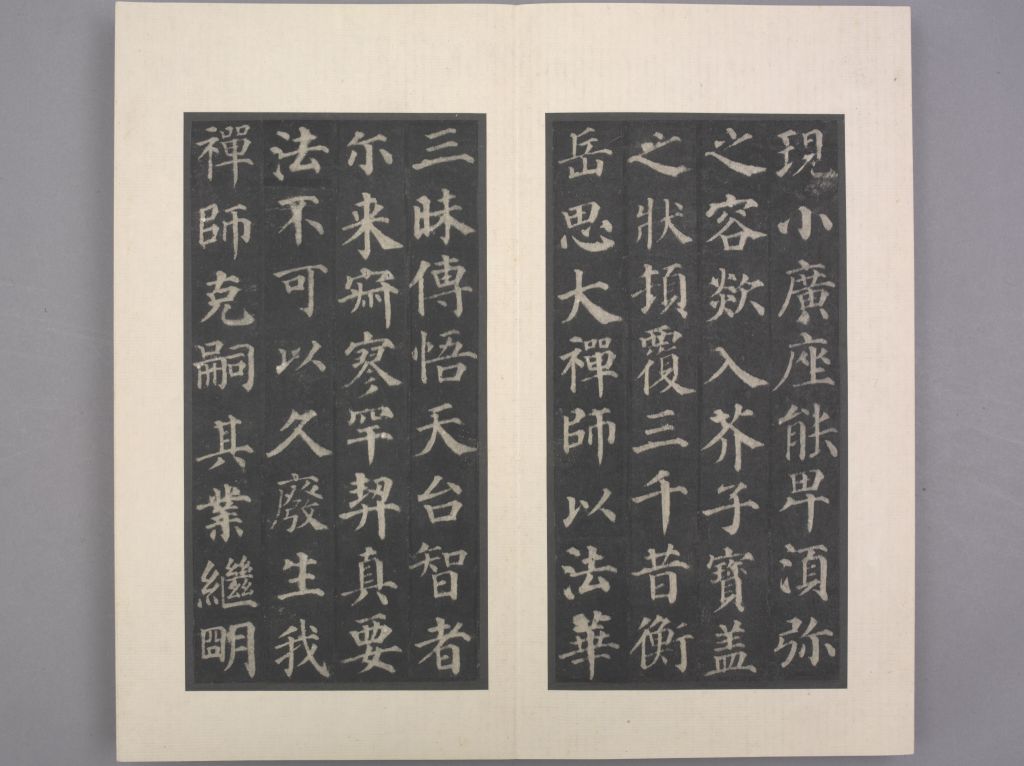 現小廣座能卑湏弥
之容歘入芥子寶盖
之狀頂覆三千昔衡
岳思大禪師以法華
三昧傳悟天台智者
尓来寂寥罕契真要
法不可以久廢生我
禪師克嗣其業繼明